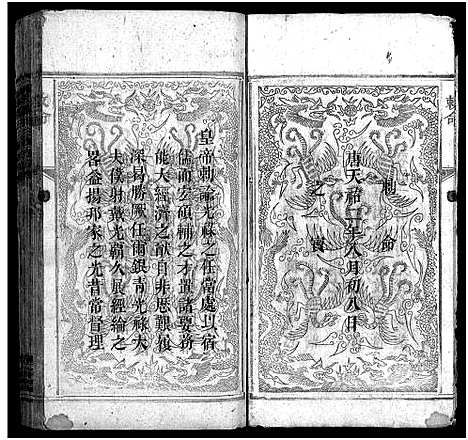 敕命
勅命
之寶
唐天祐二年八月初八日
皇帝勅諭光祿之任常處以宿
儒而宏碩輔之才置諸要務
能大經濟之猷自非歷艱
深易勝厥任爾銀青光祿大
夫僕射戴光霸久展經綸之
畧益揚邦家之光昔常督理
敕命